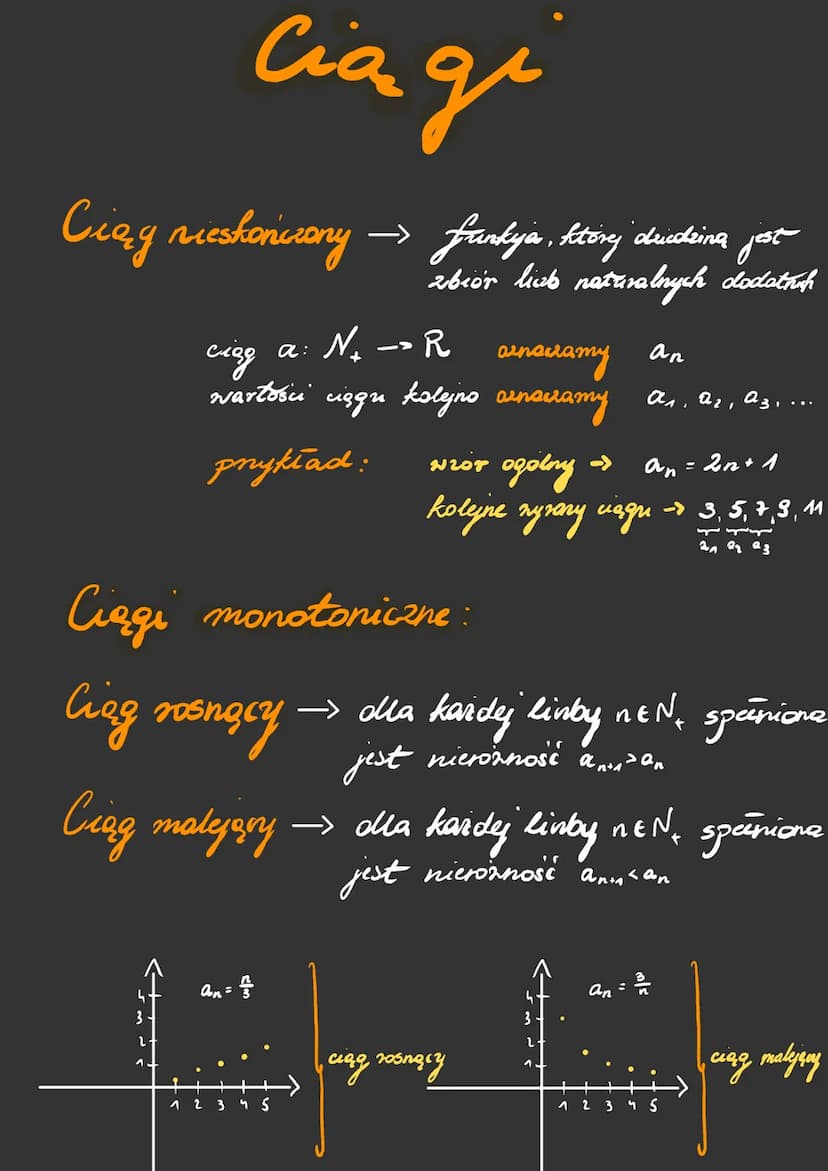 Ciągi
Ciąg nieskończony → funkcja, której dziedziną jest
zbiór liczb naturalnych dodatnich
ciąg a: N₊ → R oznaczamy aₙ
wartości ciągu kolejno oznaczamy a₁, a₂, a₃, ...
przykład: wzór ogólny → aₙ = 2n + 1
kolejne wyrazy ciągu → 3, 5, 7, 9, 11
a₁ a₂ a₃
Ciągi monotoniczne:
Ciąg rosnący → dla każdej liczby n ∈ N₊ spełniona
jest nierówność aₙ₊₁ > aₙ
Ciąg malejący → dla każdej liczby n ∈ N₊ spełniona
jest nierówność aₙ₊₁ < aₙ
aₙ = n/3
4
3
2
1
1 2 3 4 5
ciąg rosnący
aₙ = 3/n
4
3
2
1
1 2 3 4 5
ciąg malejący